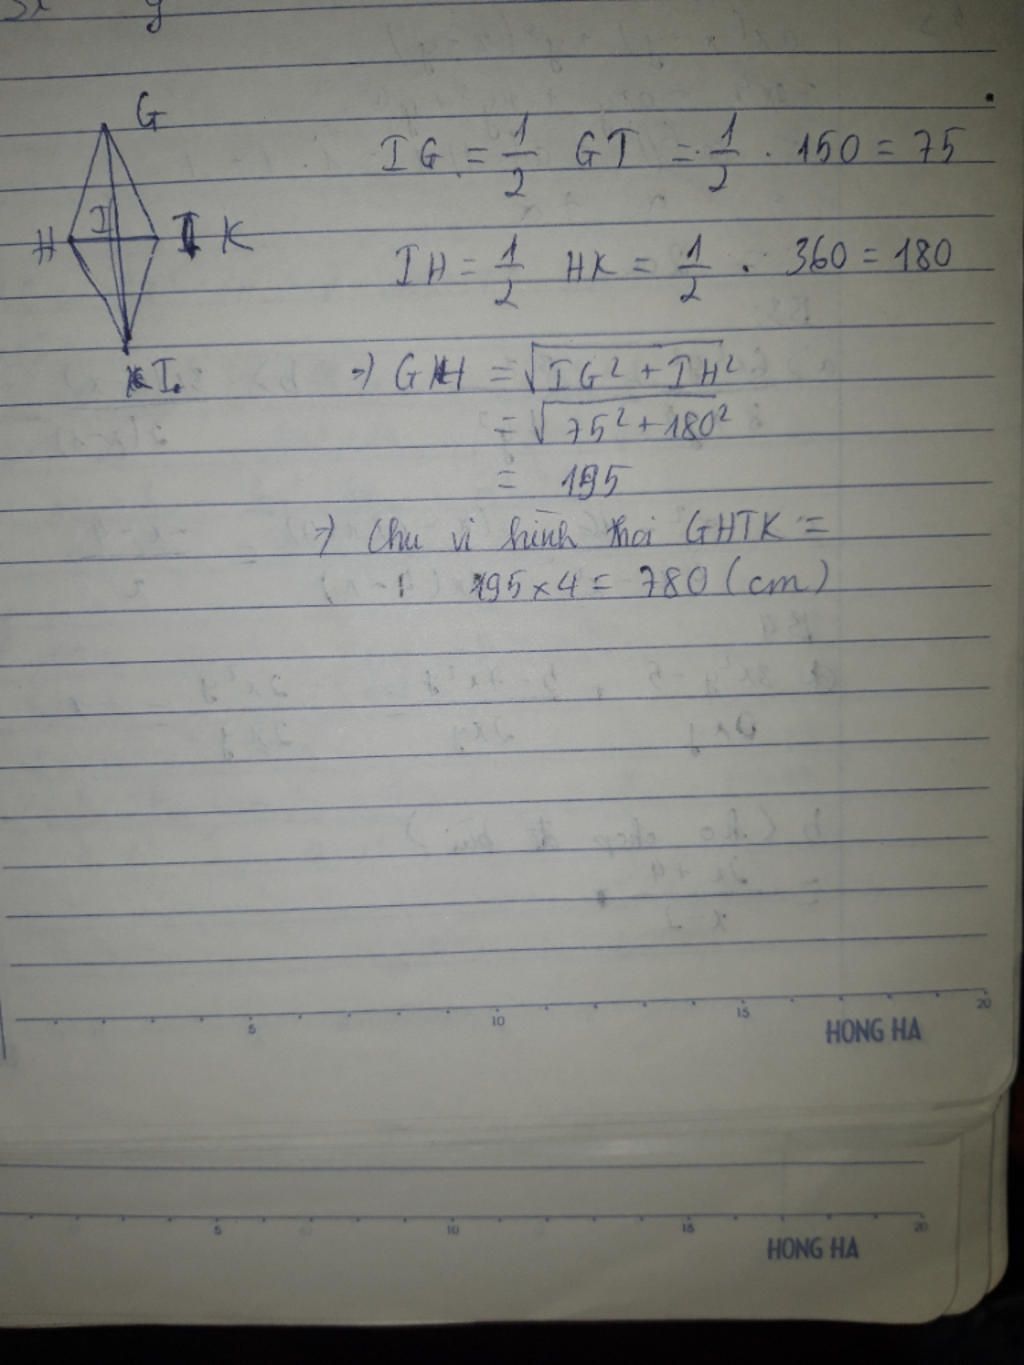 G
IG = 1/2 GT = 1/2 . 150 = 75
H I K
IH = 1/2 HK = 1/2 . 360 = 180
=> GH = √IG² + IH²
= √75² + 180²
= 195
=> Chu vi hình thoi GHTK =
195 x 4 = 780 (cm)
5 10 15 20
HONG HA
5 10 15 20
HONG HA